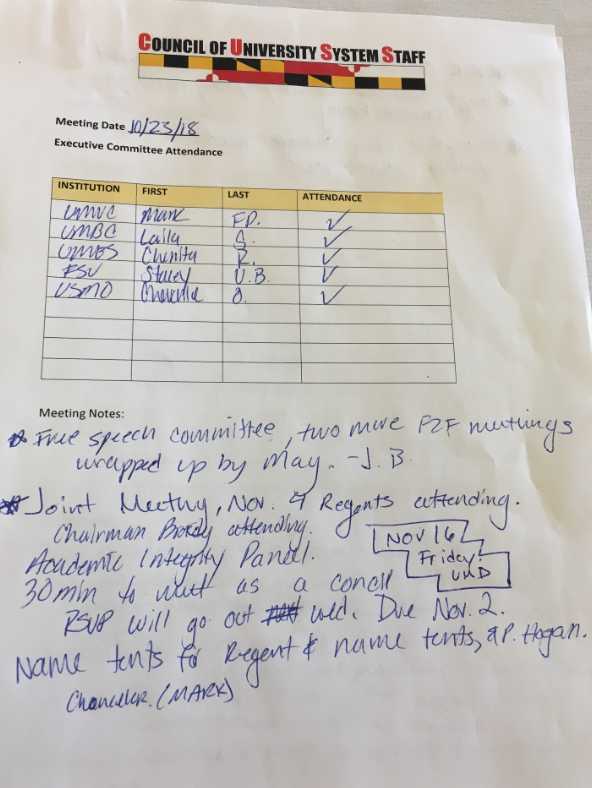 COUNCIL OF UNIVERSITY SYSTEM STAFF
Meeting Date 10/23/18
Executive Committee Attendance
INSTITUTION FIRST LAST ATTENDANCE
Mark F.D. ✓
UMBC Laila S. ✓
UMES Chenita R. ✓
FSU Stacey V.B. ✓
USMO O. ✓
Meeting Notes:
* Free speech committee, two more F2F meetings
wrapped up by May. -J.B.
* Joint Meeting, Nov. 4 Regents attending.
Chairman Brady attending.
Academic Integrity Panel.
30 min to as a
NOV 16
Friday!
UMD
RSVP will go out wed. Due Nov. 2.
Name tents for Regent & name tents, P. Hogan.
Chancellor. (MARK)